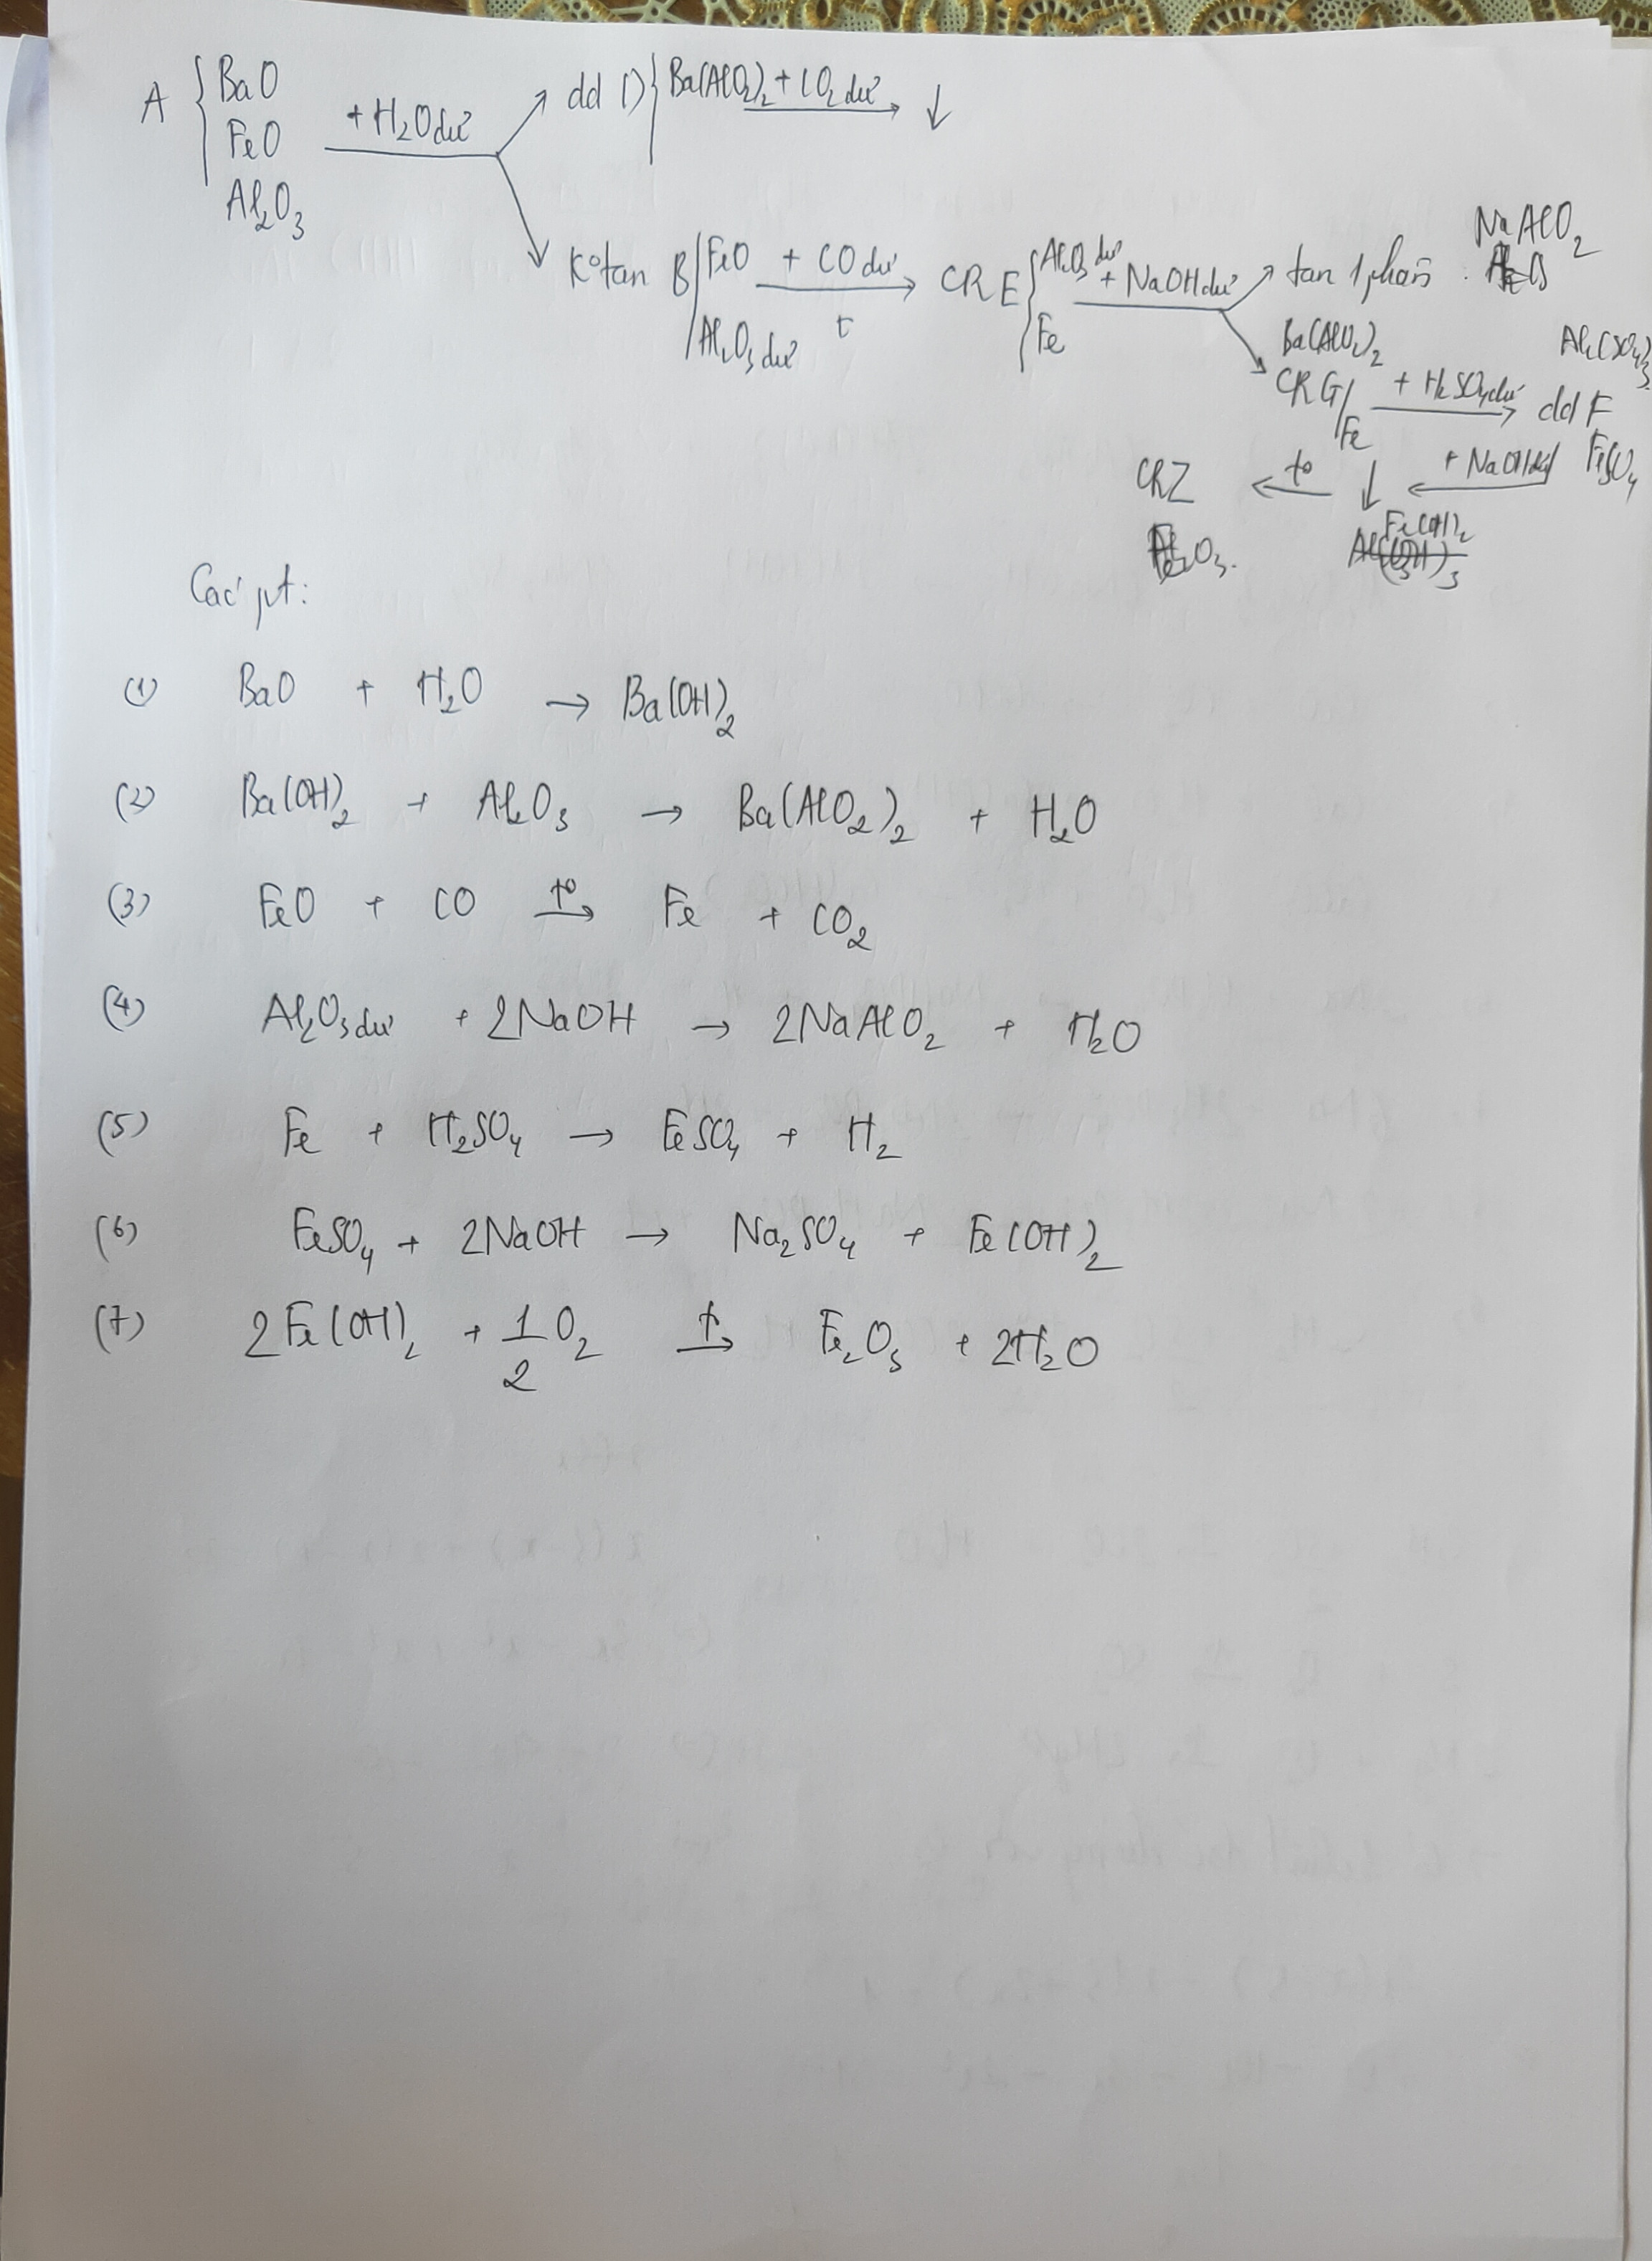 A { BaO
FeO
Al2O3
+ H2O dư
dd D { Ba(AlO2)2 + CO2 dư → ↓
K°tan B | FeO + CO dư → CR E { Al2O3 dư + NaOH dư → tan 1 phần : NaAlO2
Al2O3 dư t Fe
Ba(AlO2)2 Al2(SO4)3
CR G / Fe + H2SO4 dư → dd F
CRZ ← to ↓ ← + NaOH FeSO4
Fe2O3. Fe(OH)2
Các pt:
(1) BaO + H2O → Ba(OH)2
(2) Ba(OH)2 + Al2O3 → Ba(AlO2)2 + H2O
(3) FeO + CO →to Fe + CO2
(4) Al2O3 dư + 2NaOH → 2NaAlO2 + H2O
(5) Fe + H2SO4 → FeSO4 + H2
(6) FeSO4 + 2NaOH → Na2SO4 + Fe(OH)2
(7) 2Fe(OH)2 + 1/2 O2 →t Fe2O3 + 2H2O